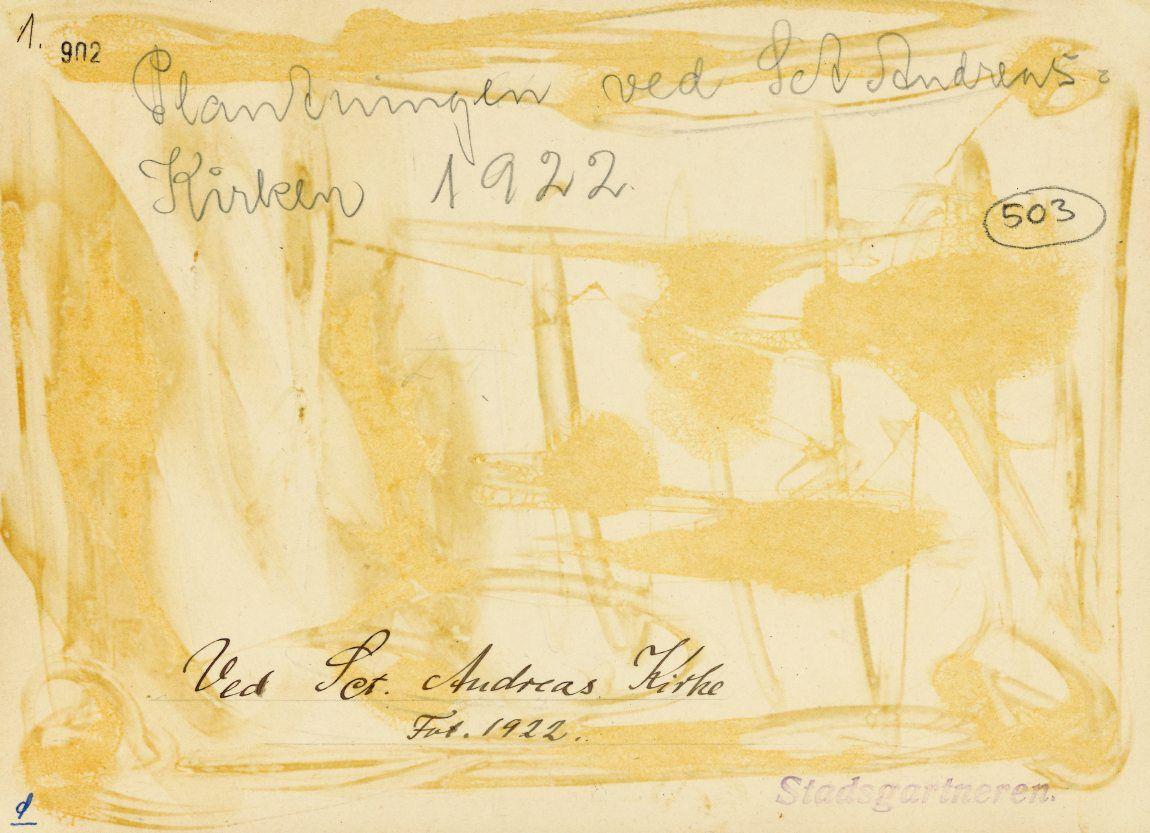 1.
902
Plantningen ved Sct Andreas-
Kirken 1922.
503
Ved Sct. Andreas Kirke
Fot. 1922.
Stadsgartneren.
d